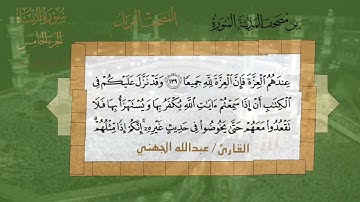 سُورَةُ النِّسَاءِ
الجزء الخامس
المصحف المرتل
من مصحف المدينة المنورة
عِندَهُمُ ٱلۡعِزَّةَ فَإِنَّ ٱلۡعِزَّةَ لِلَّهِ جَمِيعٗا ١٣٩ وَقَدۡ نَزَّلَ عَلَيۡكُمۡ فِي
ٱلۡكِتَٰبِ أَنۡ إِذَا سَمِعۡتُمۡ ءَايَٰتِ ٱللَّهِ يُكۡفَرُ بِهَا وَيُسۡتَهۡزَأُ بِهَا فَلَا
تَقۡعُدُواْ مَعَهُمۡ حَتَّىٰ يَخُوضُواْ فِي حَدِيثٍ غَيۡرِهِۦٓ إِنَّكُمۡ إِذٗا مِّثۡلُهُمۡۗ
القارئ / عبدالله الجهني